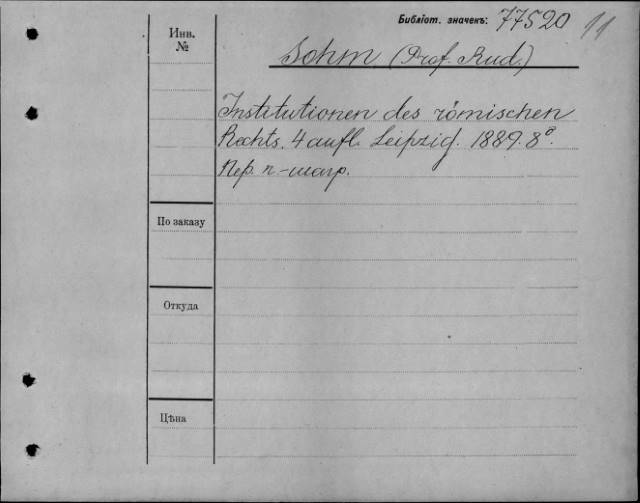 Библіот. значекъ: 77520 11
Инв.
№
Sohm (Prof. Rud.)
Institutionen des römischen
Rechts. 4 aufl. Leipzig. 1889. 8º.
Пер. п.-шагр.
По заказу
Откуда
Цѣна